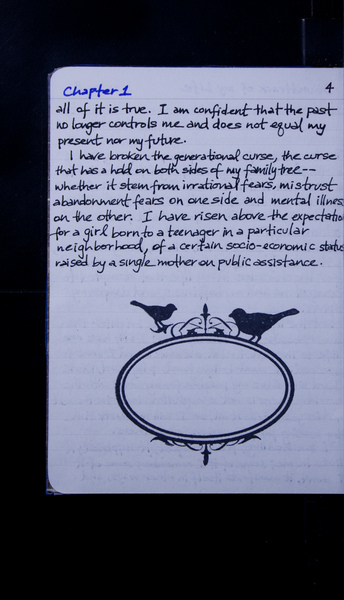 Chapter 1
4
all of it is true. I am confident that the past
no longer controls me and does not equal my
present nor my future.
I have broken the generational curse, the curse
that has a hold on both sides of my family tree--
whether it stem from irrational fears, mistrust
abandonment fears on one side and mental illness
on the other. I have risen above the expectatio
for a girl born to a teenager in a particular
neighborhood, of a certain socio-economic statu
raised by a single mother on public assistance.